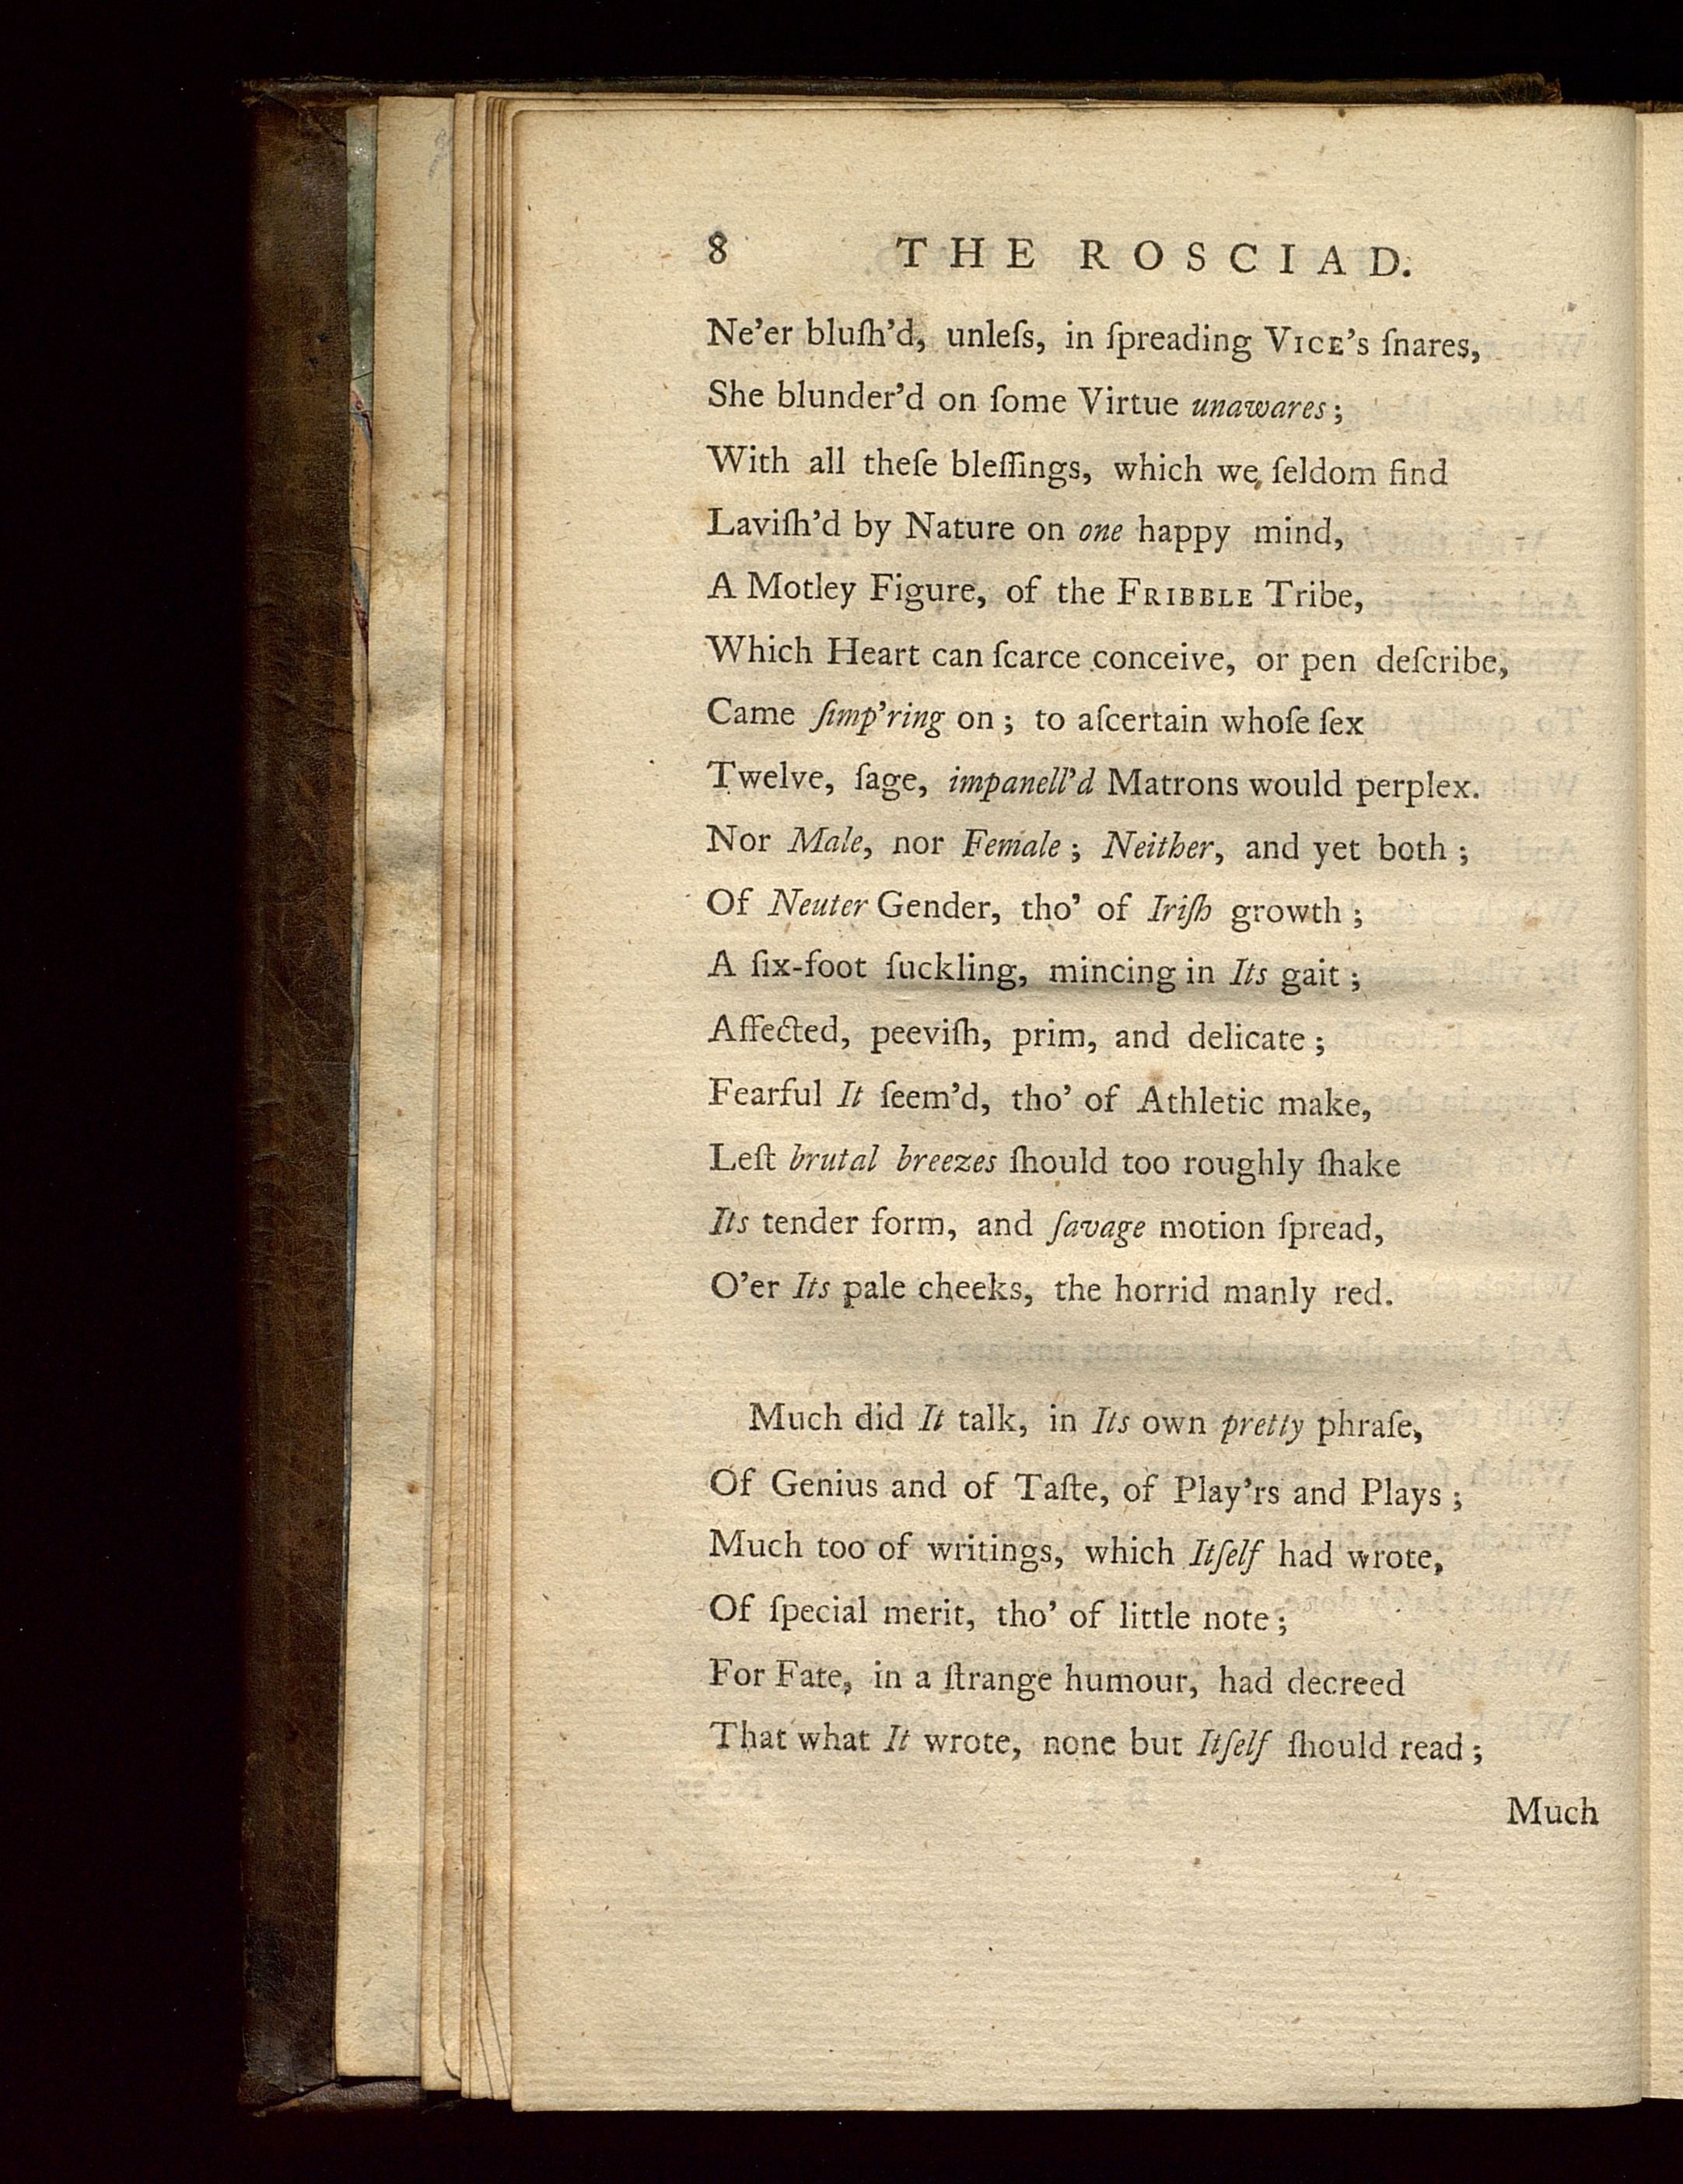 8 THE ROSCIAD.
Ne'er bluſh'd, unleſs, in ſpreading VICE's ſnares,
She blunder'd on ſome Virtue unawares;
With all theſe bleſſings, which we ſeldom find
Laviſh'd by Nature on one happy mind,
A Motley Figure, of the FRIBBLE Tribe,
Which Heart can ſcarce conceive, or pen deſcribe,
Came ſimp'ring on; to aſcertain whoſe ſex
Twelve, ſage, impanell'd Matrons would perplex.
Nor Male, nor Female; Neither, and yet both;
Of Neuter Gender, tho' of Iriſh growth;
A ſix-foot ſuckling, mincing in Its gait;
Affected, peeviſh, prim, and delicate;
Fearful It ſeem'd, tho' of Athletic make,
Leſt brutal breezes ſhould too roughly ſhake
Its tender form, and ſavage motion ſpread,
O'er Its pale cheeks, the horrid manly red.
Much did It talk, in Its own pretty phraſe,
Of Genius and of Taſte, of Play'rs and Plays;
Much too of writings, which Itſelf had wrote,
Of ſpecial merit, tho' of little note;
For Fate, in a ſtrange humour, had decreed
That what It wrote, none but Itſelf ſhould read;
Much